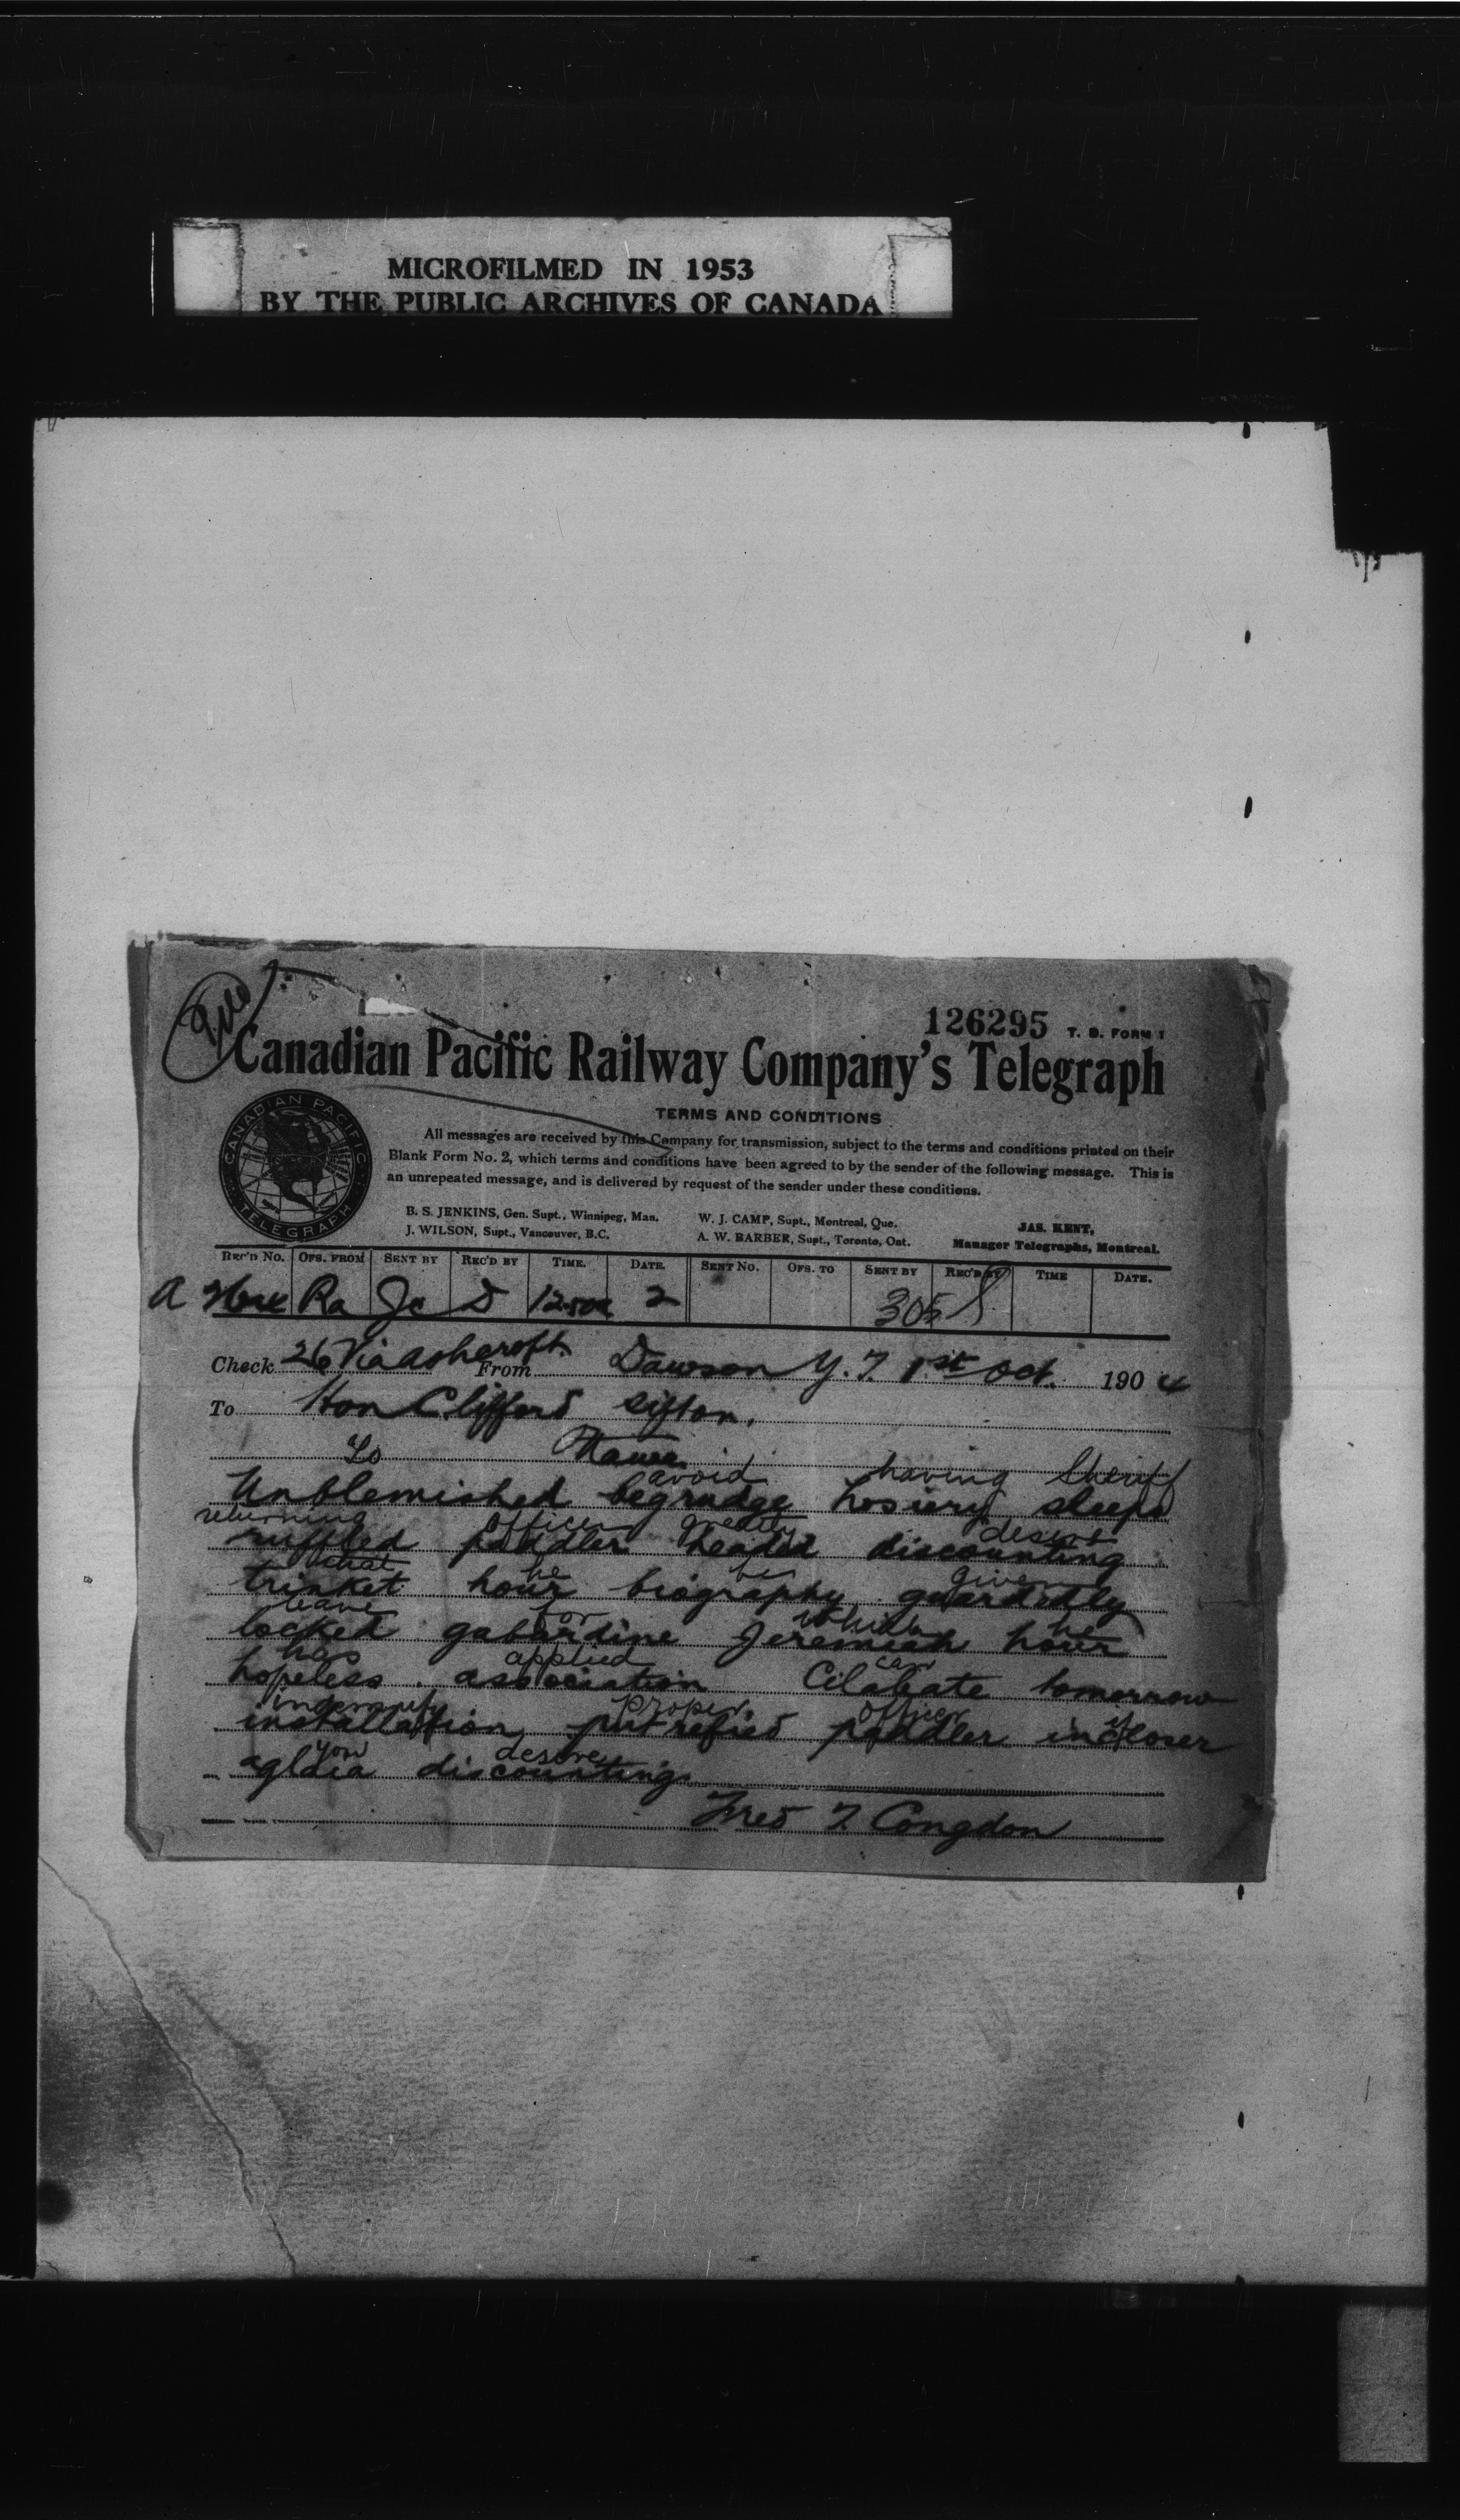 MICROFILMED IN 1953
BY THE PUBLIC ARCHIVES OF CANADA
126295 T. D. FORM 1
Canadian Pacific Railway Company's Telegraph
CANADIAN PACIFIC TELEGRAPH
TERMS AND CONDITIONS
All messages are received by this Company for transmission, subject to the terms and conditions printed on their
Blank Form No. 2, which terms and conditions have been agreed to by the sender of the following message. This is
an unrepeated message, and is delivered by request of the sender under these conditions.
B. S. JENKINS, Gen. Supt., Winnipeg, Man. W. J. CAMP, Supt., Montreal, Que. JAS. KENT,
J. WILSON, Supt., Vancouver, B.C. A. W. BARBER, Supt., Toronto, Ont. Manager Telegraphs, Montreal.
REC'D No. OFS. FROM SENT BY REC'D BY TIME. DATE. SENT No. OFS. TO SENT BY REC'D BY TIME DATE.
Ra Jc D 2 305
Check 26 Via Ashcroft From Dawson Y.T. 1st Oct. 1904
To Hon Clifford Sifton,
To
avoid having Sheriff
Unblemished begrudge hosiery sleeps
returning officer greatly desire
ruffled paddler headed discounting
that he be given
trinket hour biography guardedly
leave for which he
locked gabardine Jeremiah hour
has applied can
hopeless association Cilabate tomorrow
indemnify proper officer if
installation putrefied paddler incloser
you desire
aglaia discounting
Fred T Congdon